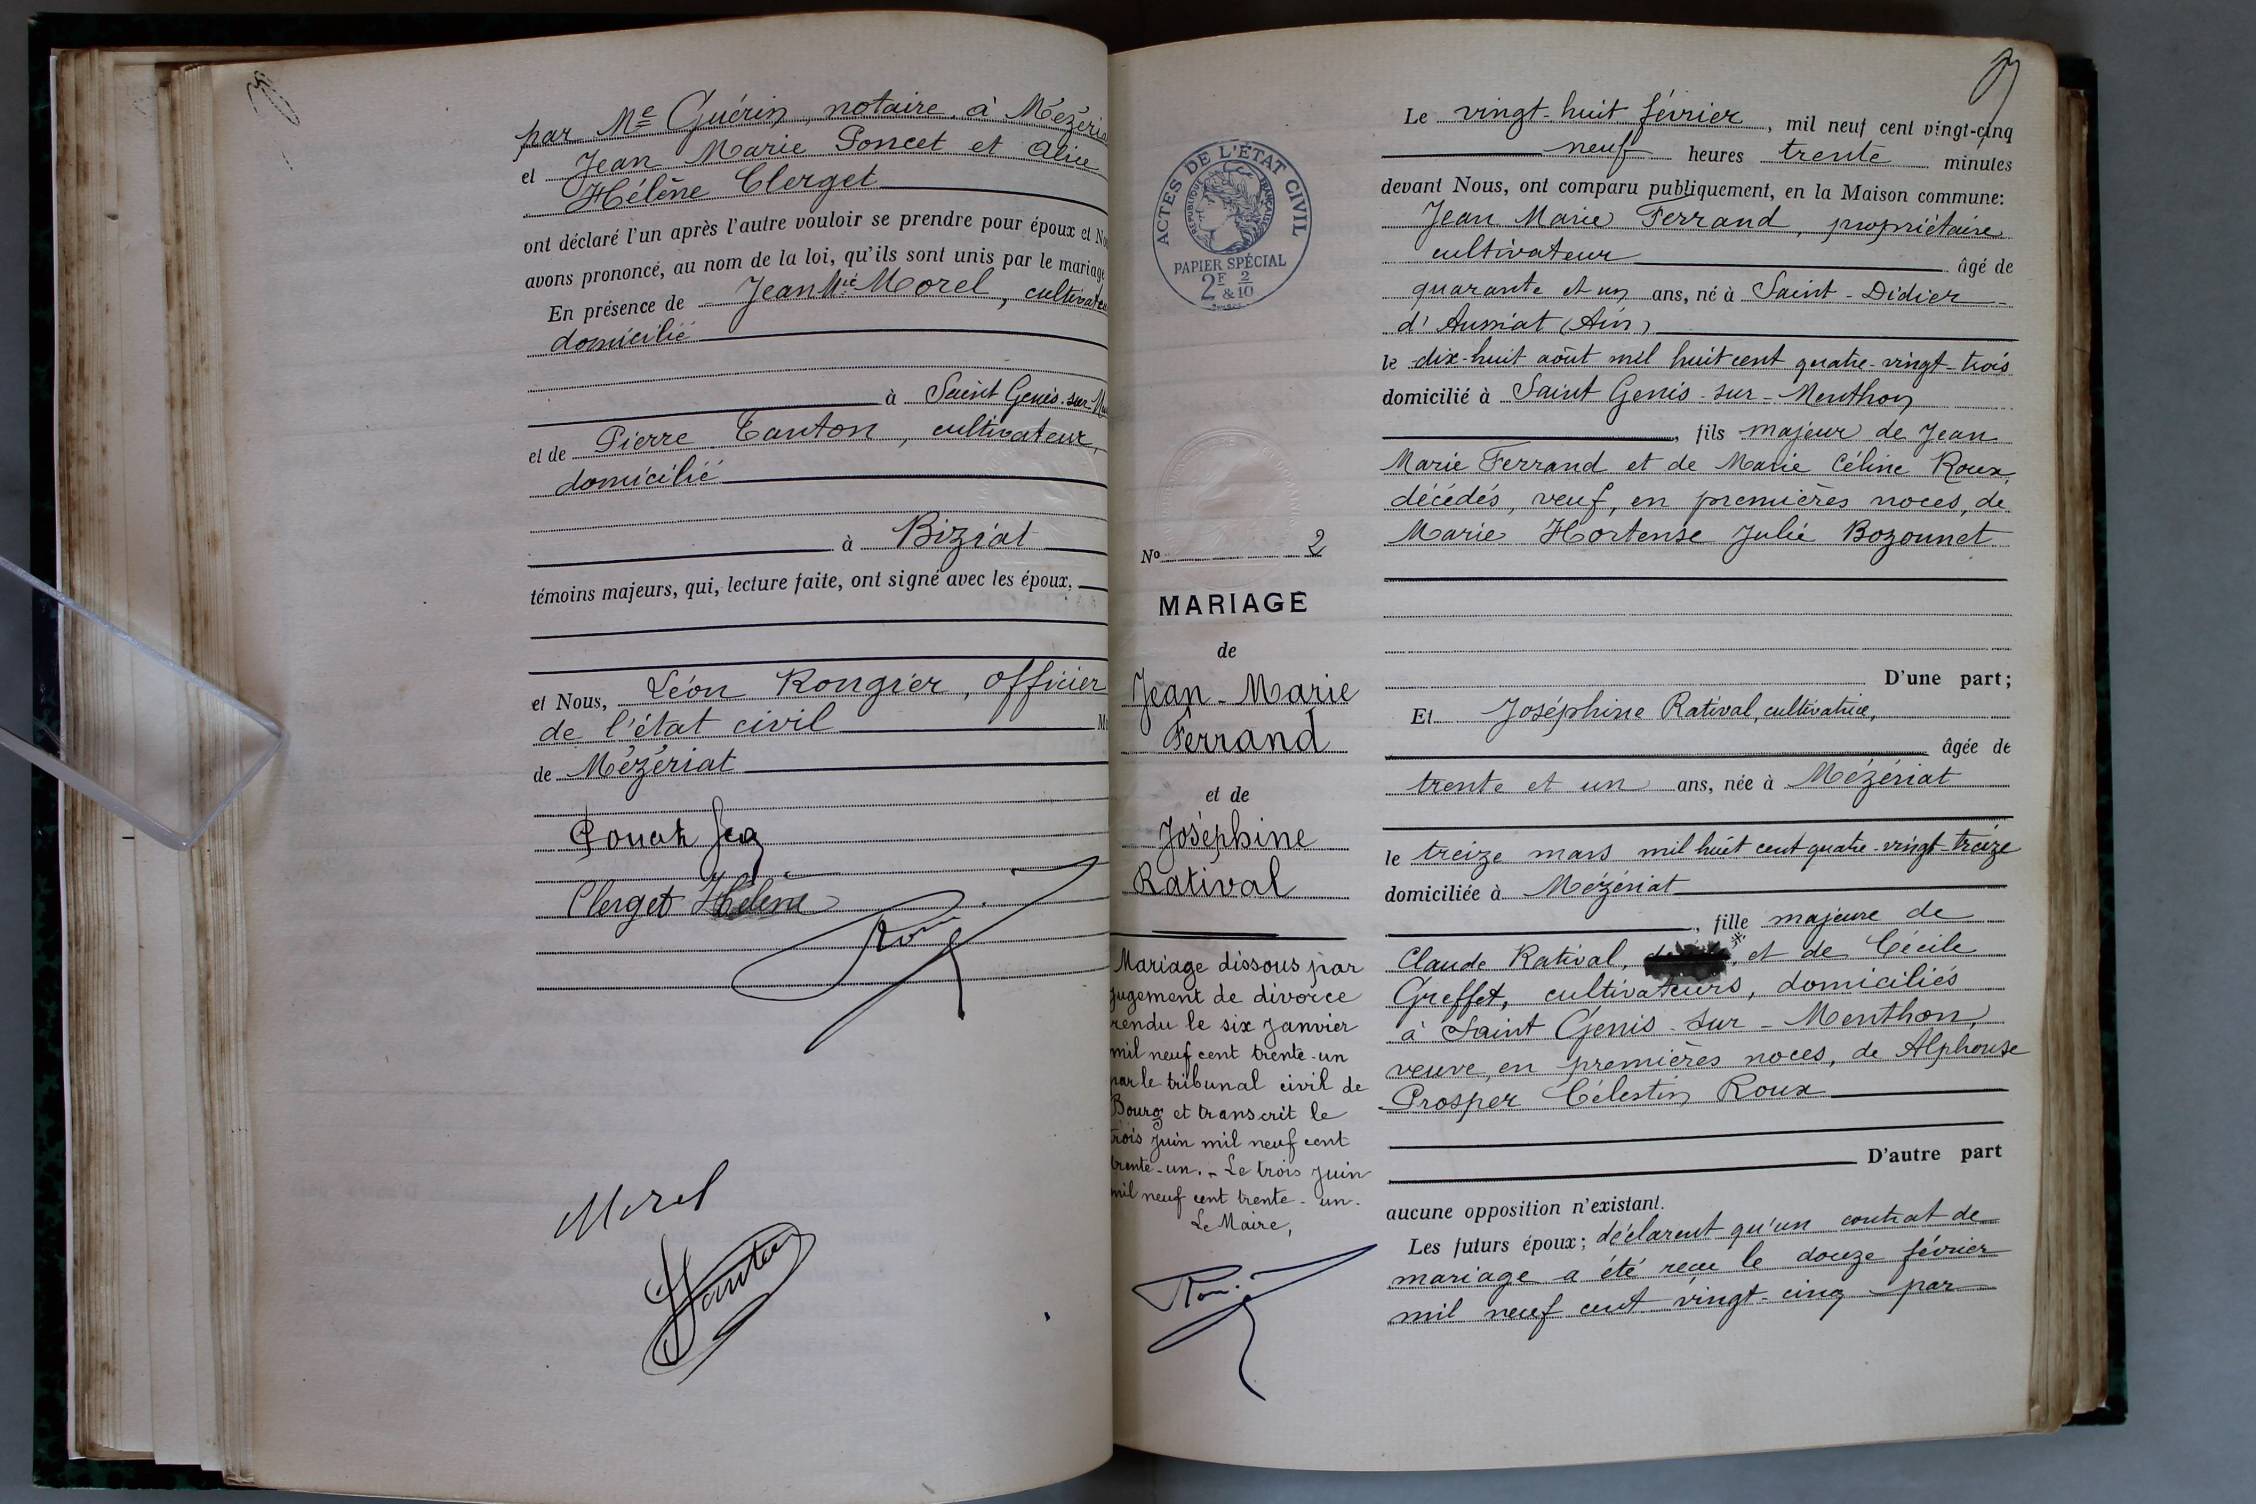 par Me Guérin, notaire, à Mézéria
et Jean Marie Poncet et Alice
Hélène Clerget
ont déclaré l'un après l'autre vouloir se prendre pour époux et No
avons prononcé, au nom de la loi, qu'ils sont unis par le mariage
En présence de Jean Mie Morel, cultivateu
domicilié
à Saint Genis-sur-M
et de Pierre Tanton, cultivateur,
domicilié
à Biziat
témoins majeurs, qui, lecture faite, ont signé avec les époux,
et Nous, Léon Rongier, officier
de l'état civil
de Mézériat
Clerget Hélène
Morel
Tanton
ACTES DE L'ÉTAT CIVIL
RÉPUBLIQUE FRANÇAISE
PAPIER SPÉCIAL
2F 2
& 10
No 2
MARIAGE
de
Jean-Marie
Ferrand
et de
Joséphine
Ratival
Mariage dissous par
jugement de divorce
rendu le six Janvier
mil neuf cent trente-un
par le tribunal civil de
Bourg et transcrit le
trois Juin mil neuf cent
trente-un. - Le trois Juin
mil neuf cent trente-un.
Le Maire,
Le vingt-huit février, mil neuf cent vingt-cinq
neuf heures trente minutes
devant Nous, ont comparu publiquement, en la Maison commune:
Jean Marie Ferrand, propriétaire
cultivateur âgé de
quarante et un ans, né à Saint-Didier-
d'Aussiat (Ain)
le dix-huit août mil huit cent quatre-vingt-trois
domicilié à Saint Genis-sur-Menthon
, fils majeur de Jean
Marie Ferrand et de Marie Céline Roux,
décédés, veuf, en premières noces, de
Marie Hortense Julie Bozonnet
D'une part;
Et Joséphine Ratival, cultivatrice,
âgée de
trente et un ans, née à Mézériat
le treize mars mil huit cent quatre-vingt treize
domiciliée à Mézériat
, fille majeure de
Claude Ratival, et de Cécile
Greffet, cultivateurs, domiciliés
à Saint Genis-sur-Menthon,
veuve, en premières noces, de Alphonse
Prosper Célestin Roux
D'autre part
aucune opposition n'existant.
Les futurs époux; déclarent qu'un contrat de
mariage a été reçu le douze février
mil neuf cent vingt-cinq par